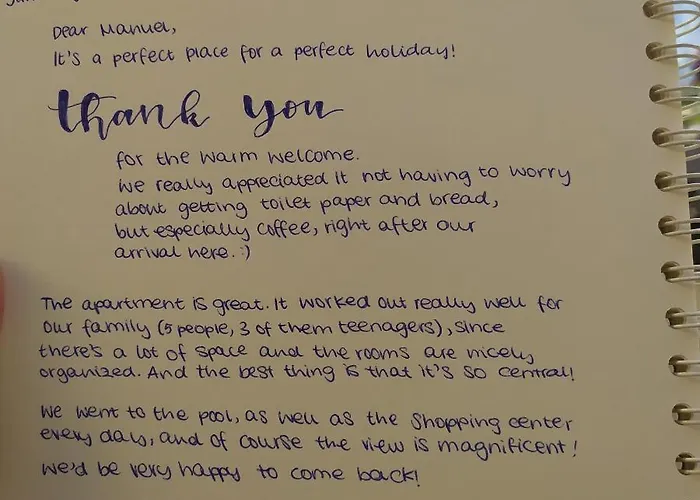 Dear Manuel,
It's a perfect place for a perfect holiday!
thank you
for the warm welcome.
We really appreciated it not having to worry
about getting toilet paper and bread,
but especially coffee, right after our
arrival here. :)
The apartment is great. It worked out really well for
our family (5 people, 3 of them teenagers), since
there's a lot of space and the rooms are nicely
organized. And the best thing is that it's so central!
We went to the pool, as well as the shopping center
every day, and of course the view is magnificent!
We'd be very happy to come back!